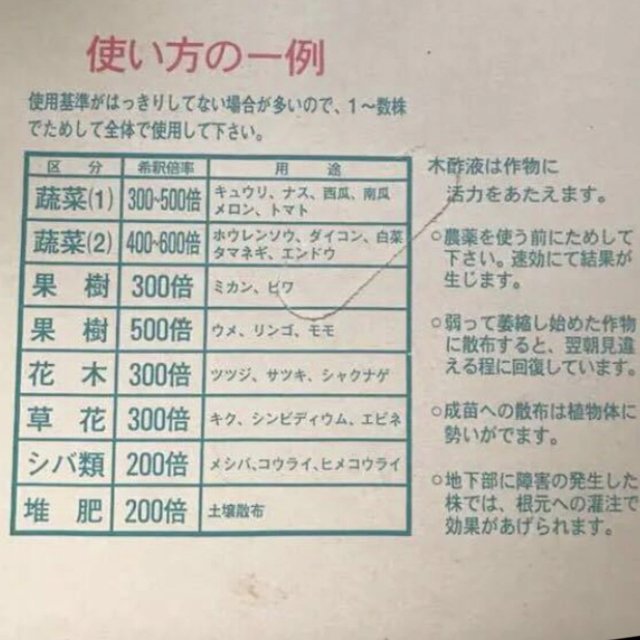 使い方の一例
使用基準がはっきりしてない場合が多いので、1〜数株
でためして全体で使用して下さい。
区 分 希釈倍率 用 途
蔬菜(1) 300~500倍 キュウリ、ナス、西瓜、南瓜
メロン、トマト
蔬菜(2) 400~600倍 ホウレンソウ、ダイコン、白菜
タマネギ、エンドウ
果 樹 300倍 ミカン、ビワ
果 樹 500倍 ウメ、リンゴ、モモ
花 木 300倍 ツツジ、サツキ、シャクナゲ
草 花 300倍 キク、シンビディウム、エビネ
シバ類 200倍 メシバ、コウライ、ヒメコウライ
堆 肥 200倍 土壌散布
木酢液は作物に
活力をあたえます。
○農薬を使う前にためして
下さい。速効にて結果が
生じます。
○弱って萎縮し始めた作物
に散布すると、翌朝見違
える程に回復しています。
○成苗への散布は植物体に
勢いがでます。
○地下部に障害の発生した
株では、根元への灌注で
効果があげられます。